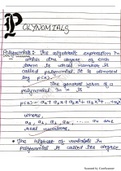 POLYNOMIALS
Polynomials : The algebraic expression in
which the degree of each
term is whole number is
called polynomial. It is denoted
by p(x).
The general form of a
polynomial is
p(x) = a₀ + a₁x + a₂x² + a₃x³
where,
a₀, a₁, a₂, a₃, ... are
real numbers.
The highest of variable in
polynomial is called its degree
Scanned by CamScanner